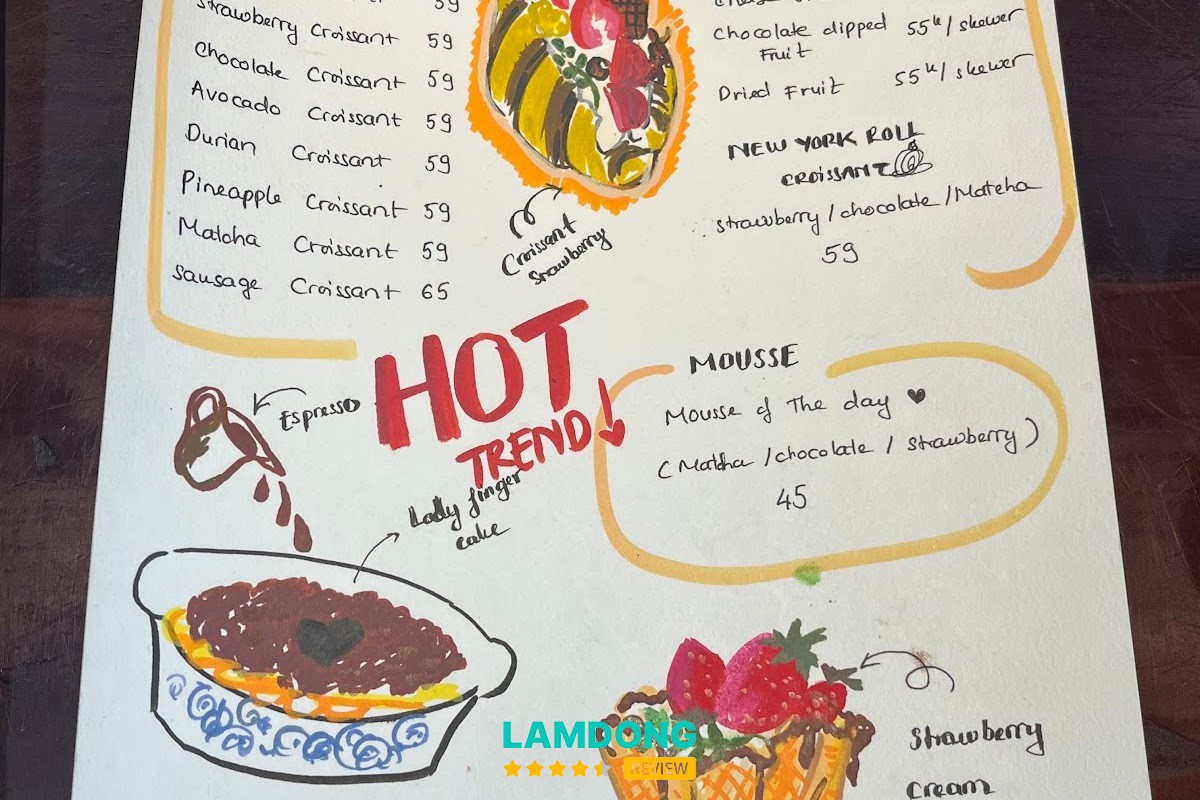 59
Strawberry Croissant 59
Chocolate Croissant 59
Avocado Croissant 59
Durian Croissant 59
Pineapple Croissant 59
Matcha Croissant 59
Sausage Croissant 65
Croissant
Strawberry
Chocolate dipped 55k/skewer
Fruit
Dried Fruit 55k/skewer
NEW YORK ROLL
CROISSANT
strawberry/chocolate/Matcha
59
HOT
TREND!
Espresso
Lady finger
cake
MOUSSE
Mousse of The day
(Matcha/chocolate/strawberry)
45
Strawberry
cream
LAMDONG
REVIEW